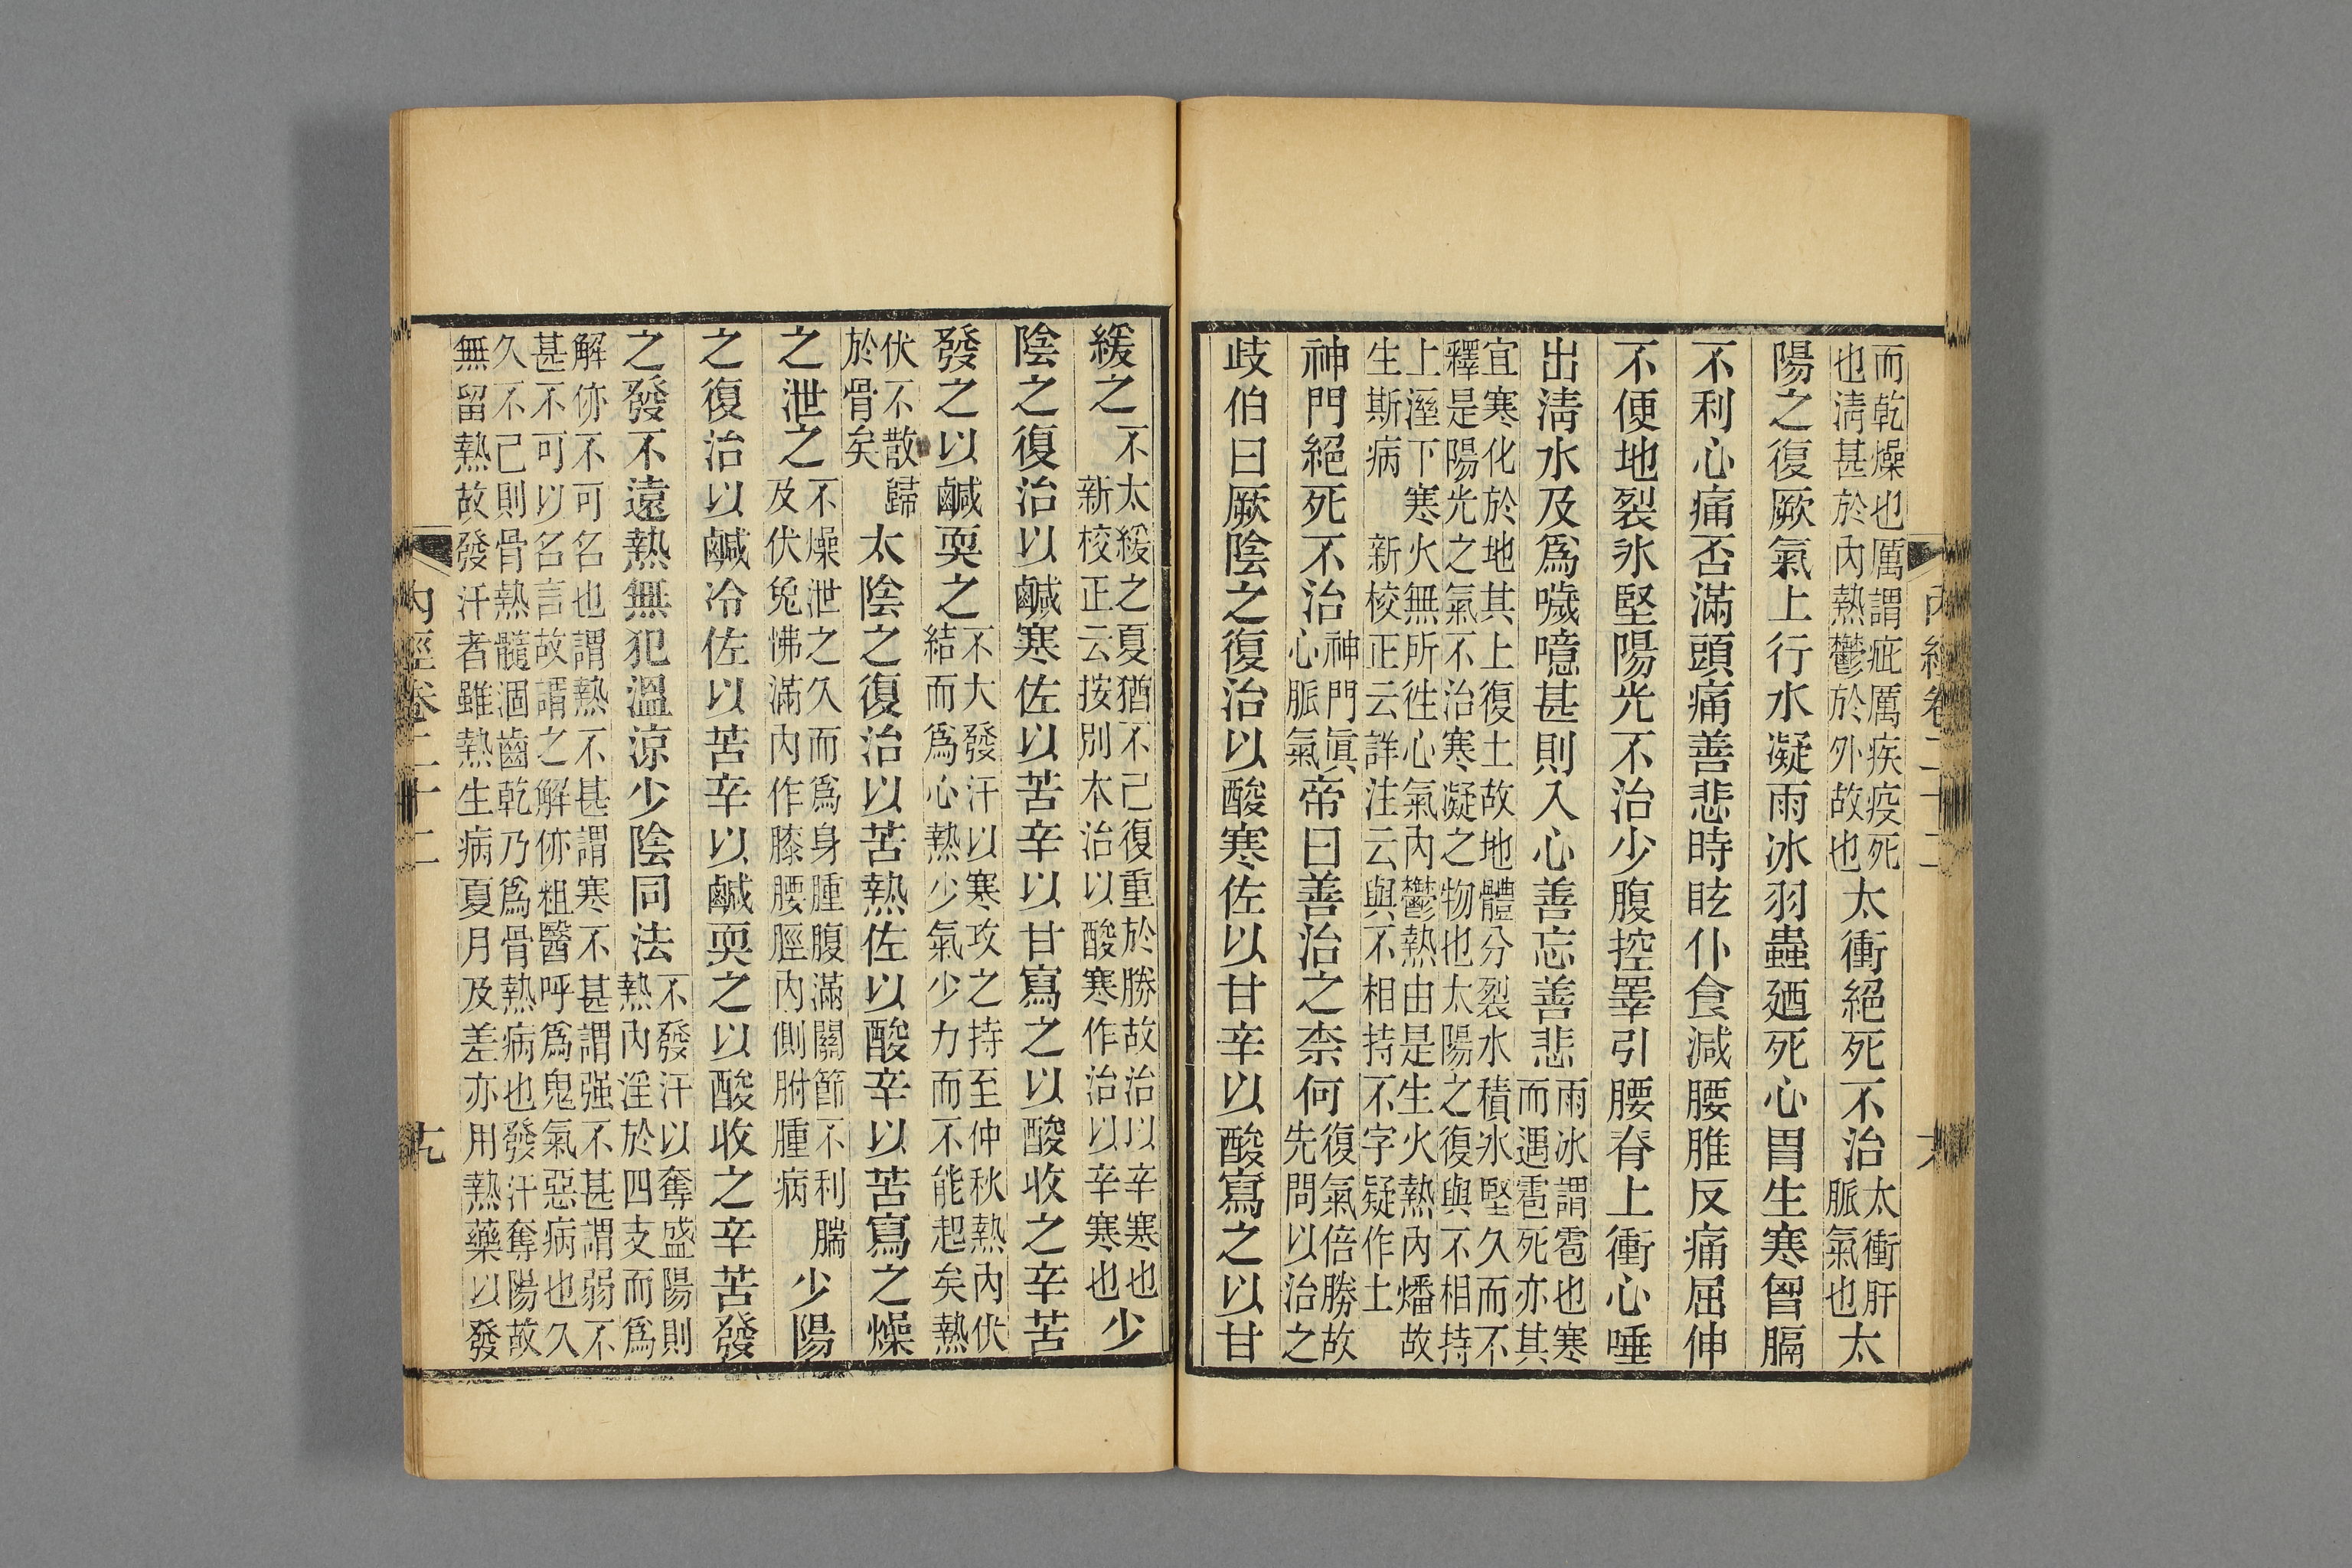 而乾燥也厲謂疵厲疾疫死
也淸甚於內熱鬱於外故也
太衝絕死不治
太衝肝
脈氣也
太
陽之復厥氣上行水凝雨冰羽蟲廼死心胃生寒曾膈
不利心痛否滿頭痛善悲時眩仆食減腰脽反痛屈伸
不便地裂氷堅陽光不治少腹控睪引腰脊上衝心唾
出淸水及爲噦噫甚則入心善忘善悲
雨冰謂雹也寒
而遇雹死亦其
宜寒化於地其上復土故地體分裂水積氷堅久而不
釋是陽光之氣不治寒凝之物也太陽之復與不相持
上溼下寒火無所徃心氣內鬱熱由是生火熱內燔故
生斯病 新校正云詳注云與不相持不字疑作土
神門絕死不治
神門眞
心脈氣
帝曰善治之柰何
復氣倍勝故
先問以治之
歧伯曰厥陰之復治以酸寒佐以甘辛以酸寫之以甘
內經卷二十二
緩之
不太緩之夏猶不己復重於勝故治以辛寒也
新校正云按別本治以酸寒作治以辛寒也
少
陰之復治以鹹寒佐以苦辛以甘寫之以酸收之辛苦
發之以鹹耎之
不大發汗以寒攻之持至仲秋熱內伏
結而爲心熱少氣少力而不能起矣熱
伏不散歸
於骨矣
太陰之復治以苦熱佐以酸辛以苦寫之燥
之泄之
不燥泄之久而爲身腫腹滿關節不利腨
及伏兔怫滿內作膝腰脛內側胕腫病
少陽
之復治以鹹冷佐以苦辛以鹹耎之以酸收之辛苦發
之發不遠熱無犯溫涼少陰同法
不發汗以奪盛陽則
熱內淫於四支而爲
解㑊不可名也謂熱不甚謂寒不甚謂强不甚謂弱不
甚不可以名言故謂之解㑊粗醫呼爲鬼氣惡病也久
久不己則骨熱髓涸齒乾乃爲骨熱病也發汗奪陽故
無留熱故發汗者雖熱生病夏月及差亦用熱藥以發
內經卷二十二
十九